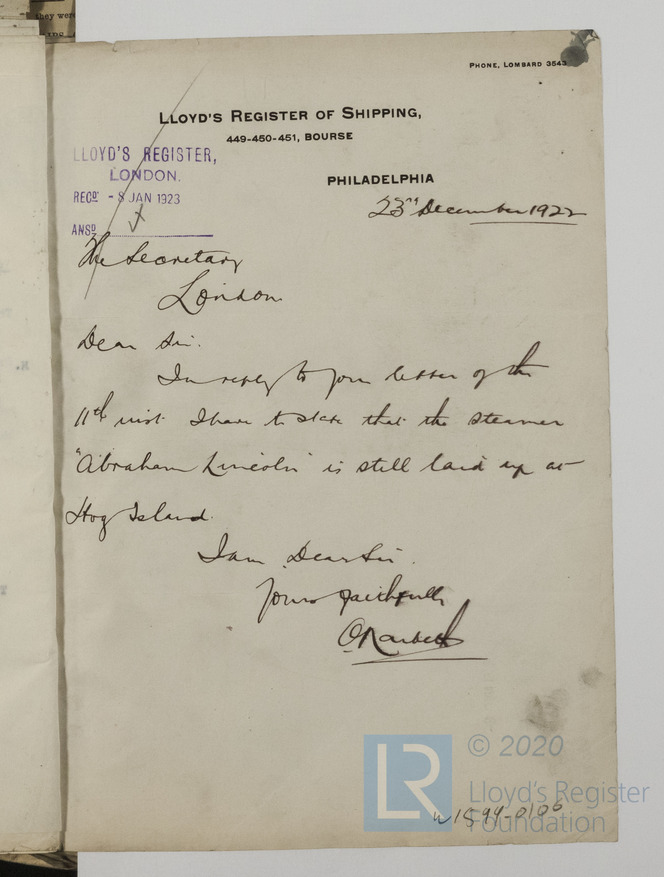 they were
PHONE, LOMBARD 3543
LLOYD'S REGISTER OF SHIPPING,
449-450-451, BOURSE
PHILADELPHIA
LLOYD'S REGISTER,
LONDON.
RECD - 8 JAN 1923
ANSD
23rd December 1922
The Secretary
London
Dear Sir.
In reply to your letter of the
11th inst. I have to state that the steamer
"Abraham Lincoln" is still laid up at
Hog Island.
I am, Dear Sir.
Yours faithfully
LR
© 2020
Lloyd's Register
Foundation
W1594-0106